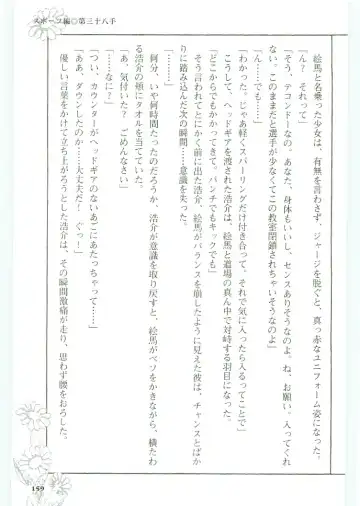 スポーツ編◎第三十八手
　絵馬と名乗った少女は、有無を言わさず、ジャージを脱ぐと、真っ赤なユニフォーム姿になった。
「ん？　それって」
「そう、テコンドーなの。あなた、身体もいいし、センスありそうなのよ。ね、お願い。入ってくれ
ない。このままだと選手が少なくてこの教室閉鎖されちゃいそうなのよ」
「ん……でも……」
「わかった。じゃあ軽くスパーリングだけ付き合って、それで気に入ったら入るってことで」
　こうして、ヘッドギアを渡された浩介は、絵馬と道場の真ん中で対峙する羽目になった。
「どこからでもかかってきて。パンチでもキックでも」
　そう言われてとにかく前に出た浩介、絵馬がバランスを崩したように見えた彼は、チャンスとばか
りに踏み込んだ次の瞬間……意識を失った。
　何分、いや何時間たったのだろうか、浩介が意識を取り戻すと、絵馬がベソをかきながら、横たわ
る浩介の頬にタオルを当てていた。
「あ、気付いた？　ごめんなさい」
「……なに？」
「つい、カウンターがヘッドギアのないあごにあたっちゃって……」
「ああ、ダウンしたのか……大丈夫だ！　ぐっ！」
　優しい言葉をかけて立ち上がろうとした浩介は、その瞬間激痛が走り、思わず腰をおろした。
159